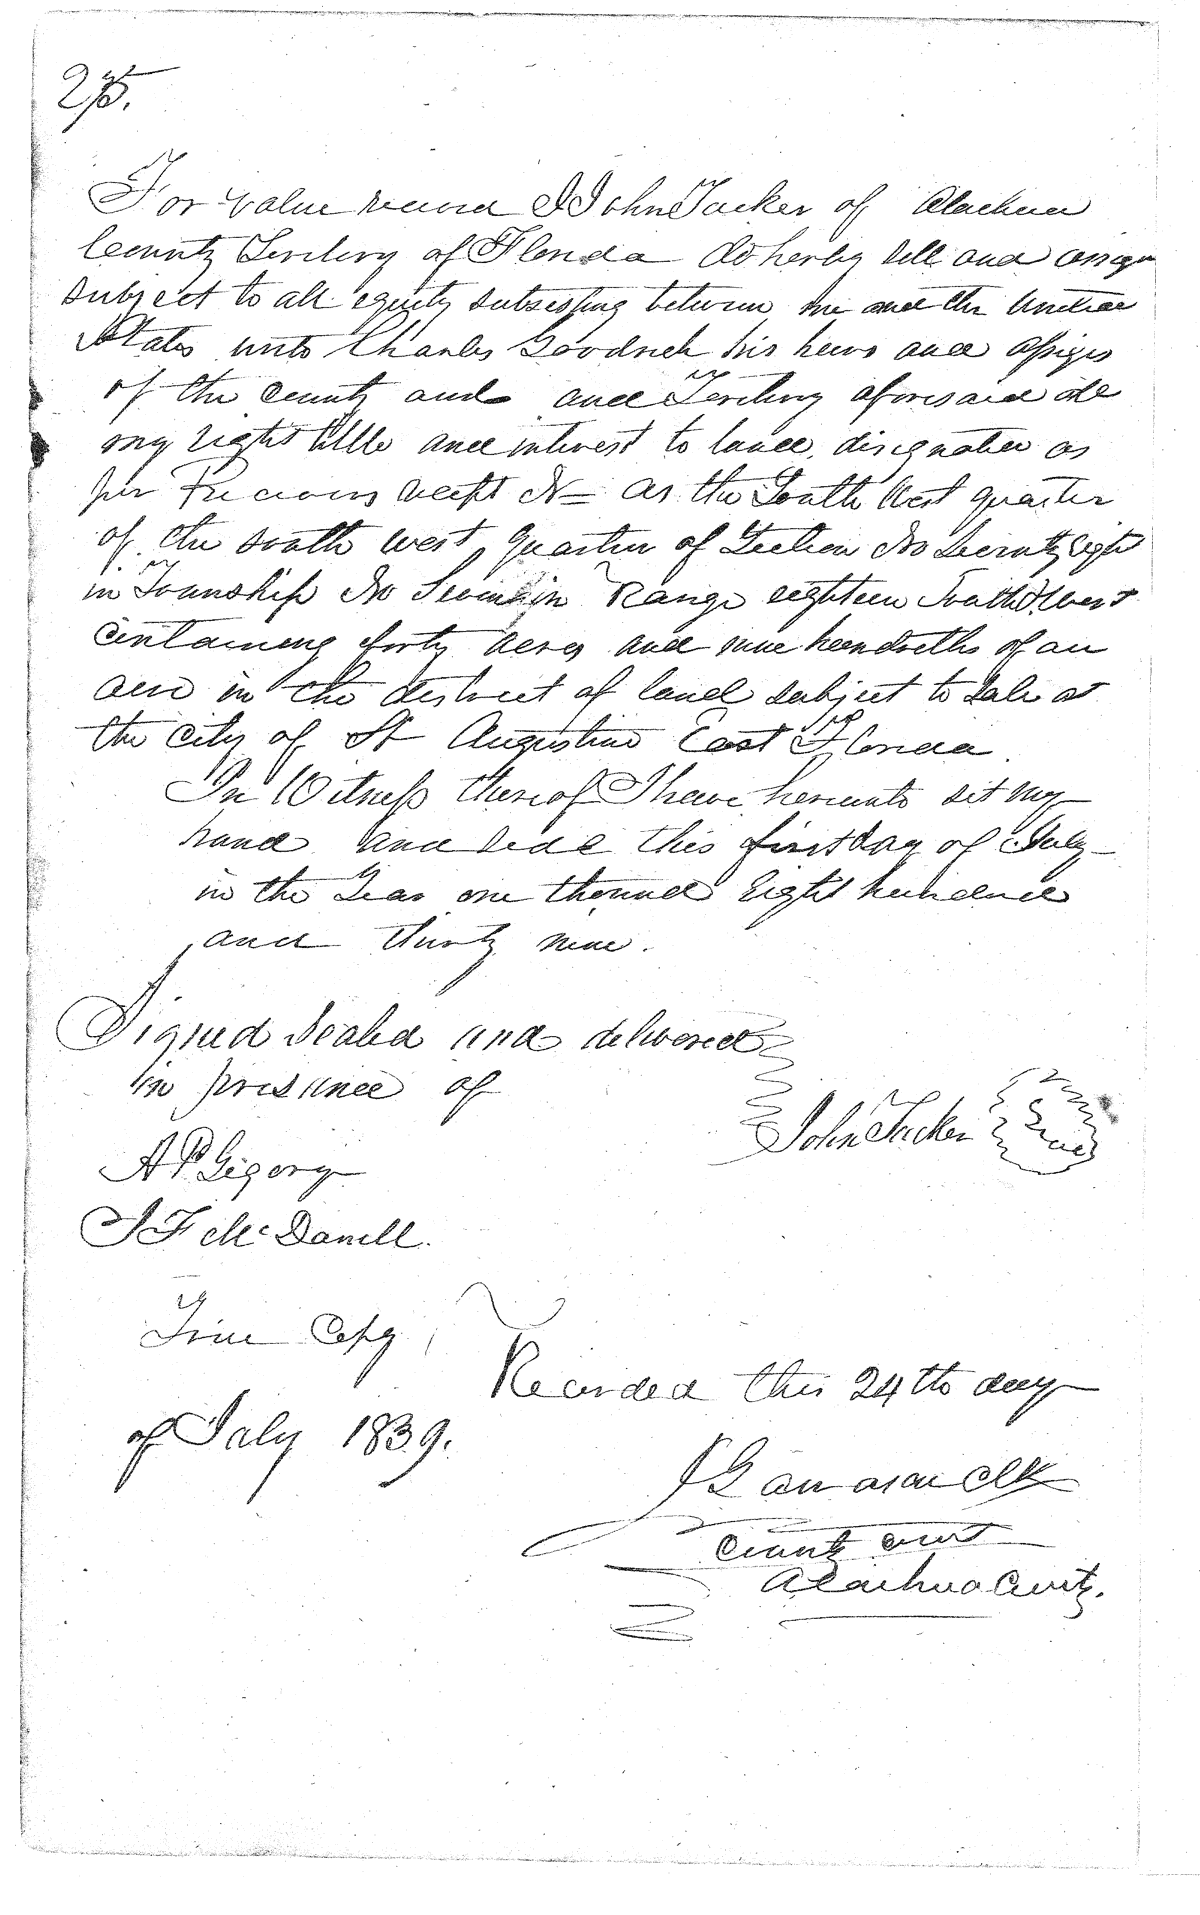 275.
For value received I John Tucker of Alachua
County Territory of Florida do herby sell and assign
subject to all equity subsisting between me and the United
States unto Charles Goodrich his heirs and assigns
of the County and and Territory aforesaid all
my right title and interest to land designated as
per receipt No as the South West quarter
of the south west quarter of Section No Seventy eight
in Township No Seven in Range eighteen South & West
containing forty acres and nine hundreths of an
acre in the district of land subject to Sale at
the city of St Augustine East Florida
In Witness thereof I have hereunto set my
hand and seal this first day of July
in the Year one thousand Eight hundred
and thirty nine.
Signed Sealed and delivered
in presence of
John Tucker Seal
A P
J F McDanell.
True Copy
Recorded this 24th day
of July 1839.
Clk
County Court
Alachua County.